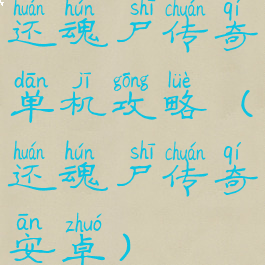 huán hún shī chuán qí
还魂尸传奇
dān jī gōng lüè
单机攻略（
huán hún shī chuán qí
还魂尸传奇
ān zhuó
安卓）